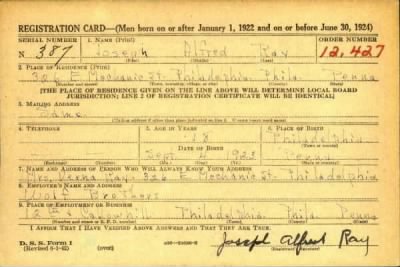 REGISTRATION CARD—(Men born on or after January 1, 1922 and on or before June 30, 1924)
SERIAL NUMBER 1. NAME (Print) ORDER NUMBER
N 387 Joseph Alfred Ray 12,427
(First) (Middle) (Last)
2. PLACE OF RESIDENCE (Print)
326 E. Mechanic St. Philadelphia Phila. Penna
[THE PLACE OF RESIDENCE GIVEN ON THE LINE ABOVE WILL DETERMINE LOCAL BOARD
JURISDICTION; LINE 2 OF REGISTRATION CERTIFICATE WILL BE IDENTICAL]
3. MAILING ADDRESS
Same
4. TELEPHONE 5. AGE IN YEARS 6. PLACE OF BIRTH
18 Philadelphia
DATE OF BIRTH
Sept. 4 1923 Penna
7. NAME AND ADDRESS OF PERSON WHO WILL ALWAYS KNOW YOUR ADDRESS
Mrs. Ray, 326 E. Mechanic St. Philadelphia
8. EMPLOYER'S NAME AND ADDRESS
Wolf Brothers
9. PLACE OF EMPLOYMENT OR BUSINESS
12th & Callowhill Philadelphia, Phila. Penna
I AFFIRM THAT I HAVE VERIFIED ABOVE ANSWERS AND THAT THEY ARE TRUE.
D. S. S. Form 1
(over) Joseph Alfred Ray